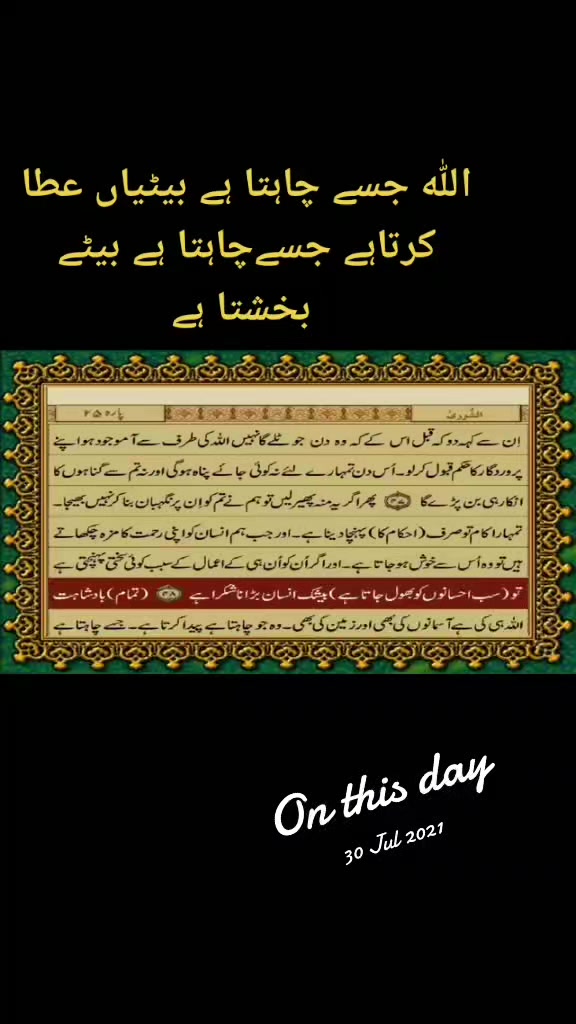 اللہ جسے چاہتا ہے بیٹیاں عطا
کرتاہے جسےچاہتا ہے بیٹے
بخشتا ہے
الشورىٰ
پارہ ۲۵
اِن سے کہہ دو کہ قبل اس کے کہ وہ دن جو ٹلے گا نہیں اللہ کی طرف سے آ موجود ہو اپنے
پروردگار کا حکم قبول کرلو۔ اُس دن تمہارے لئے نہ کوئی جائے پناہ ہوگی اور نہ تم سے گناہوں کا
انکار ہی بن پڑے گا پھر اگر یہ منہ پھیر لیں تو ہم نے تم کو اِن پر نگہبان بنا کر نہیں بھیجا۔
تمہارا کام تو صرف (احکام کا) پہنچا دینا ہے۔ اور جب ہم انسان کو اپنی رحمت کا مزہ چکھاتے
ہیں تو وہ اُس سے خوش ہوجاتا ہے۔ اور اگر اُن کو اُن ہی کے اعمال کے سبب کوئی سختی پہنچتی ہے
تو (سب احسانوں کو بھول جاتا ہے) بیشک انسان بڑا ناشکرا ہے ۴۸ (تمام) بادشاہت
اللہ ہی کی ہے آسمانوں کی بھی اور زمین کی بھی۔ وہ جو چاہتا ہے پیدا کرتا ہے۔ جسے چاہتا ہے
On this day
30 Jul 2021